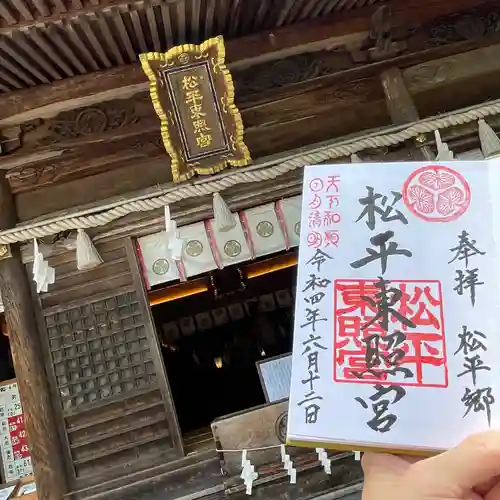 松平東照宮
奉拝 松平郷
松平東照宮
松平
東照宮
天下和順
日月清明
令和四年六月十二日